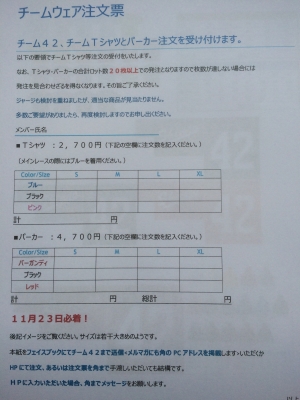 チームウェア注文票
チーム４２、チームＴシャツとパーカー注文を受け付けます。
以下の要領でチームＴシャツ等注文の受付をいたします。
なお、Ｔシャツ・パーカーの合計ロット数２０枚以上での発注となりますので枚数が達しない場合には
発注を見合わせざるを得なくなります。その旨ご了承ください。
ジャージも検討を重ねましたが、適当な商品が見当たりません。
多数ご要望がありましたら、再度検討しますのでお申し出ください。
メンバー氏名
■Ｔシャツ：２，７００円（下記の空欄に注文数を記入ください。）
（メインレースの際にはブルーを着用ください。）
Color/Size S M L XL
ブルー
ブラック
ピンク
計 円
■パーカー：４，７００円（下記の空欄に注文数を記入ください。）
Color/Size S M L XL
バーガンディ
ブラック
レッド
計 円 総計 円
１１月２３日必着！
後記イメージをご覧ください。サイズは若干大きめのようです。
本紙をフェイスブックにてチーム４２まで送信・メルマガにも角のＰＣアドレスを掲載しますいただくか
HPにて注文、あるいは注文票を角まで手渡しいただいても結構です。
ＨＰに入力いただいた場合、角までメッセージをお願いします。